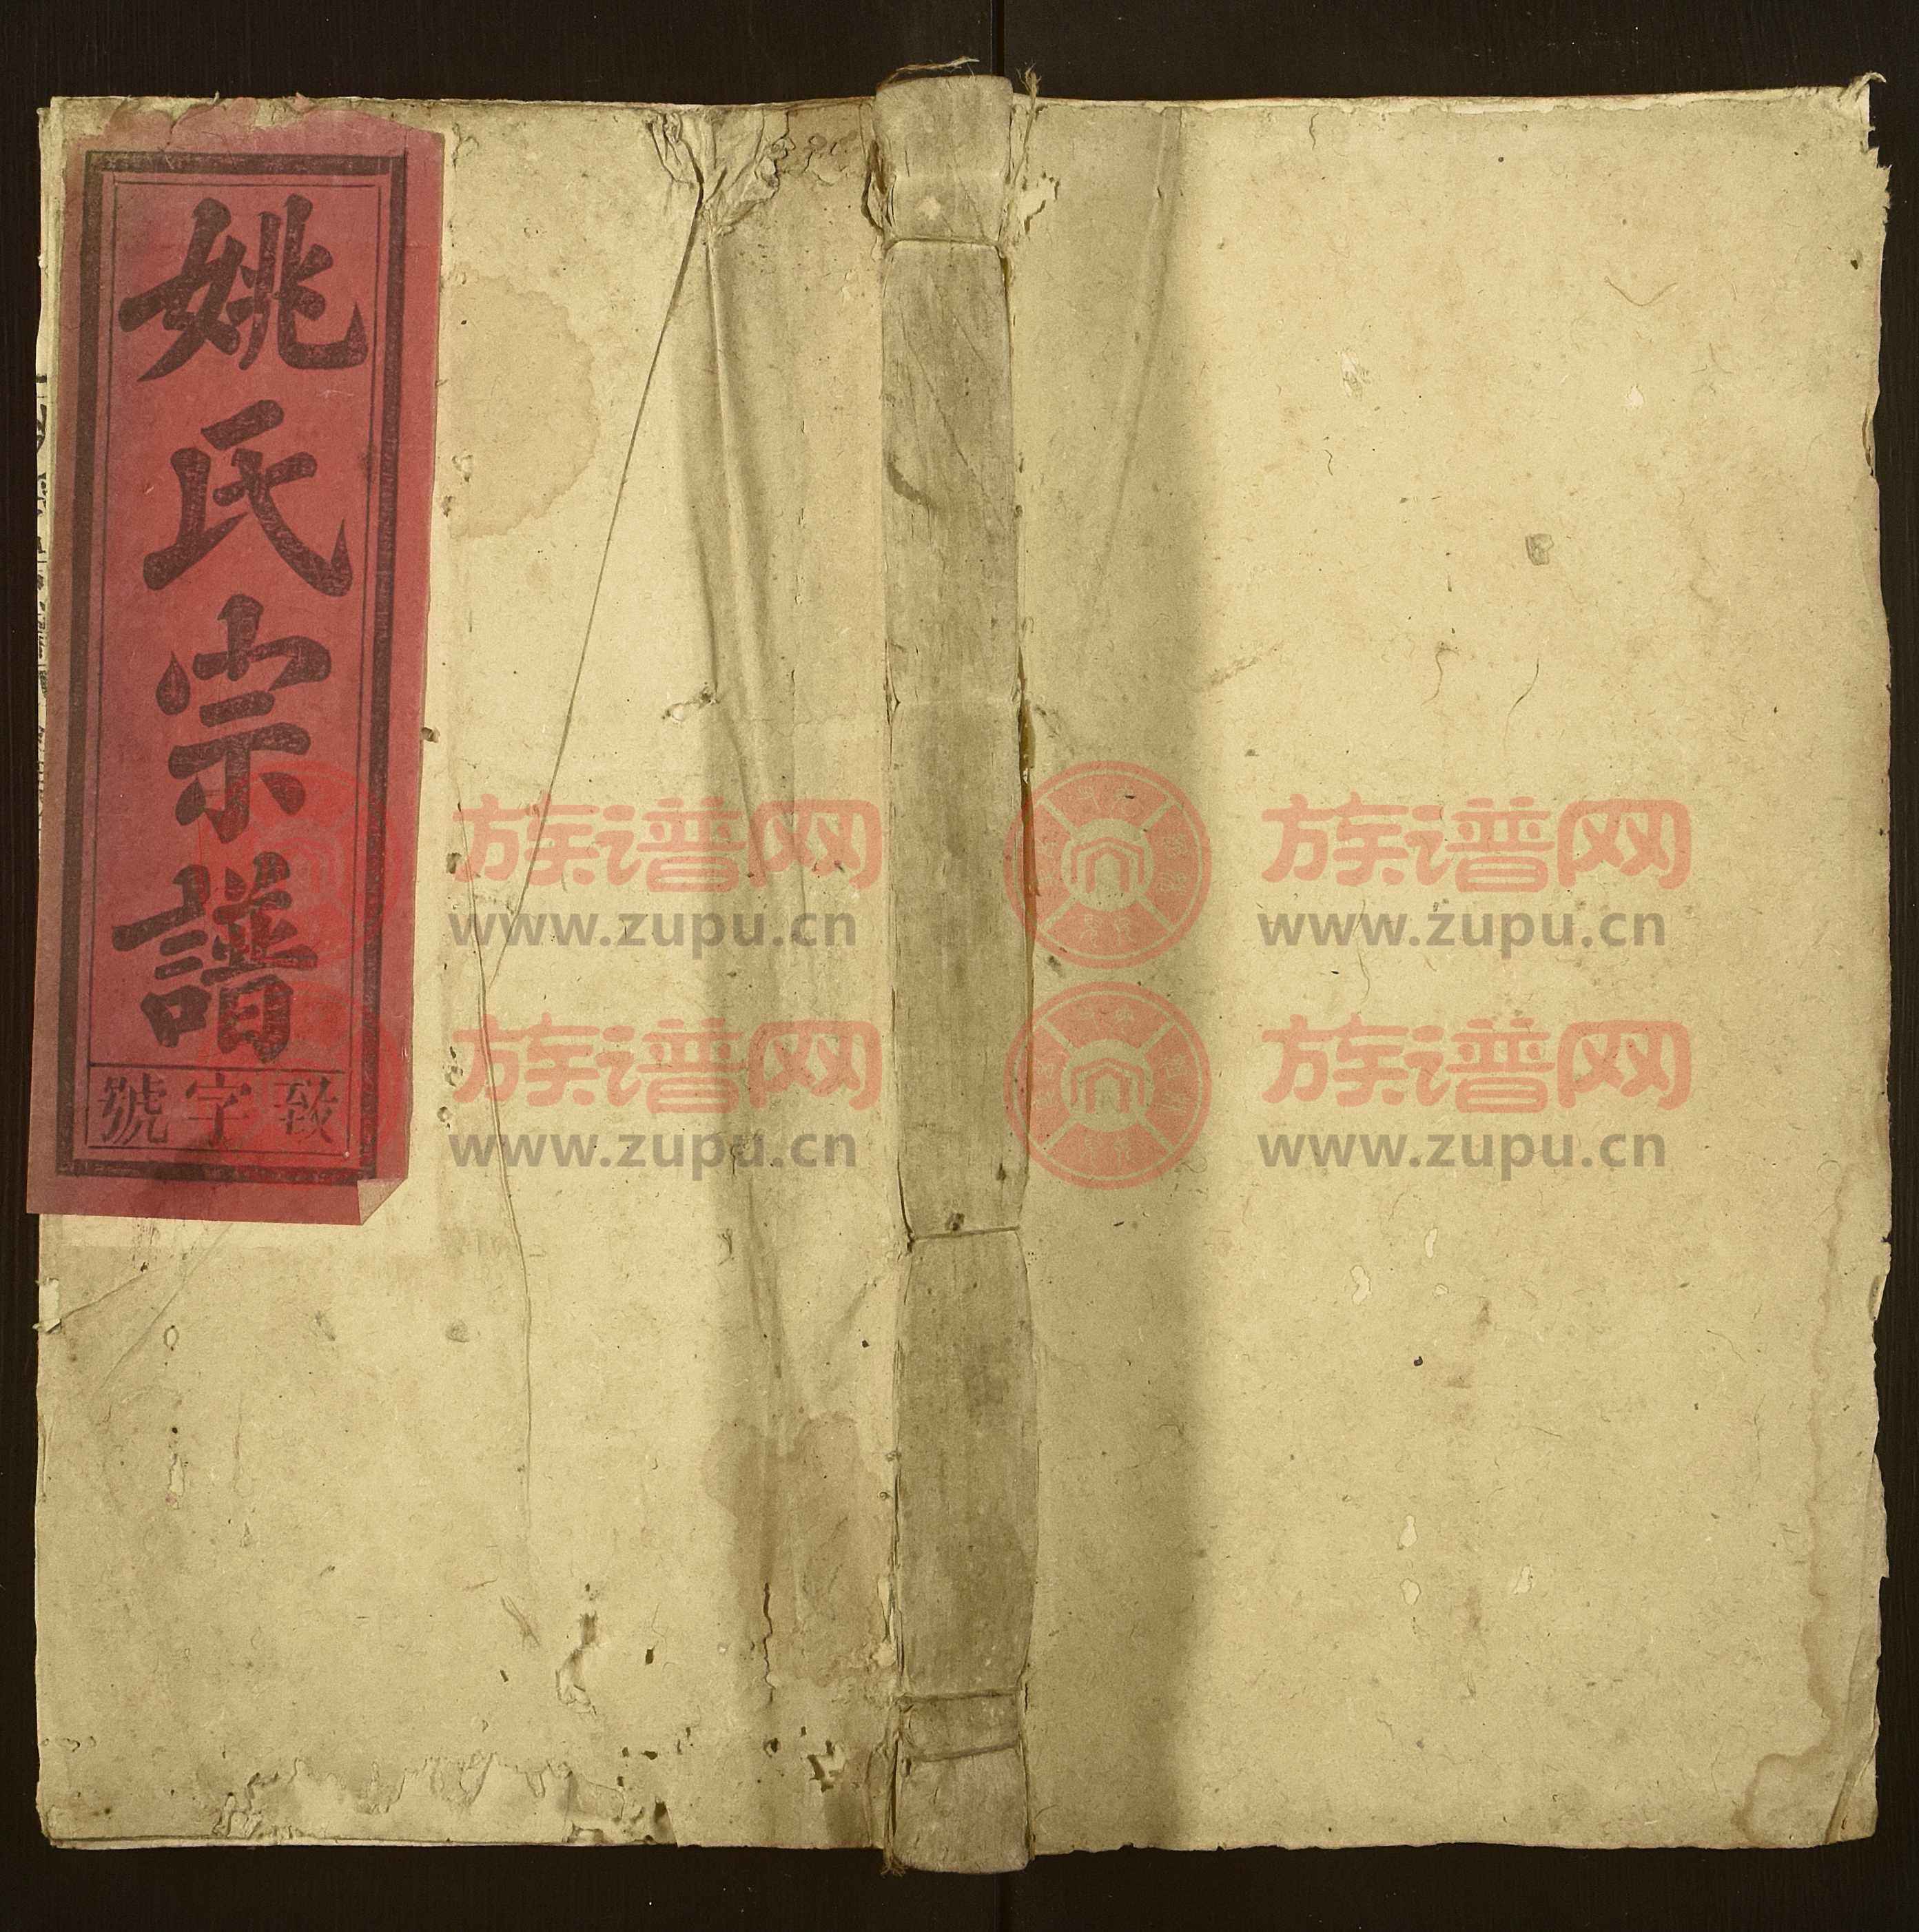 姚氏宗譜
致字號
族谱网
www.zupu.cn
族谱网
www.zupu.cn
族谱网
www.zupu.cn
族谱网
www.zupu.cn